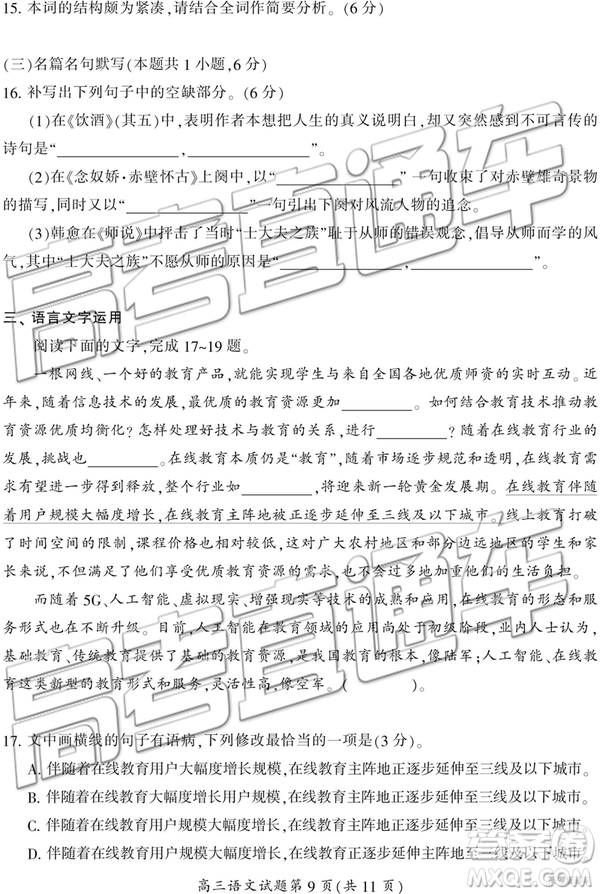 15. 本词的结构颇为紧凑,请结合全词作简要分析。(6 分)
(三)名篇名句默写(本题共 1 小题,6 分)
16. 补写出下列句子中的空缺部分。(6 分)
(1)在《饮酒》(其五)中,表明作者本想把人生的真义说明白,却又突然感到不可言传的
诗句是“____________,____________”。
(2)在《念奴娇·赤壁怀古》上阕中,以“____________”一句收束了对赤壁雄奇景物
的描写,同时又以“____________”一句引出下阕对风流人物的追念。
(3)韩愈在《师说》中抨击了当时“士大夫之族”耻于从师的错误观念,倡导从师而学的风
气,其中“士大夫之族”不愿从师的原因是“____________,____________”。
三、语言文字运用
阅读下面的文字,完成 17~19 题。
一根网线、一个好的教育产品,就能实现学生与来自全国各地优质师资的实时互动。近
年来,随着信息技术的发展,最优质的教育资源更加________。如何结合教育技术推动教
育资源优质均衡化?怎样处理好技术与教育的关系,进行________?随着在线教育行业的
发展,挑战也________。在线教育本质仍是“教育”,随着市场逐步规范和透明,在线教育
需求有望进一步释放,整个行业如________,将迎来新一轮黄金发展期。在线教育伴随
着用户规模大幅度增长,在线教育主阵地被正逐步延伸至三线及以下城市。线上教育打破
了时间空间的限制,课程价格也相对较低,这对广大农村地区和部分边远地区的学生和家
长来说,不但满足了他们享受优质教育资源的需求,也不会过多地加重他们的生活负担。
而随着 5G、人工智能、虚拟现实、增强现实等技术的成熟和应用,在线教育的形态和服
务形式也在不断升级。目前,人工智能在教育领域的应用尚处于初级阶段,业内人士认为,
基础教育、传统教育提供了基础的教育资源,是我国教育的根本,像陆军;人工智能、在线教
育这类新型的教育形式和服务,灵活性高,像空军。(    )。
17. 文中画横线的句子有语病,下列修改最恰当的一项是(3 分)。
A. 伴随着在线教育用户大幅度增长规模,在线教育主阵地正逐步延伸至三线及以下城市。
B. 伴随着在线教育大幅度增长用户规模,在线教育主阵地正逐步延伸至三线及以下城市。
C. 伴随着在线教育用户规模大幅度增长,在线教育主阵地正逐步延伸至三线及以下城市。
D. 伴随着在线教育用户规模大幅度增长,在线教育主阵地被逐步延伸至三线及以下城市。
高三语文试题第 9 页(共 11 页)
高考直通车
高考直通车